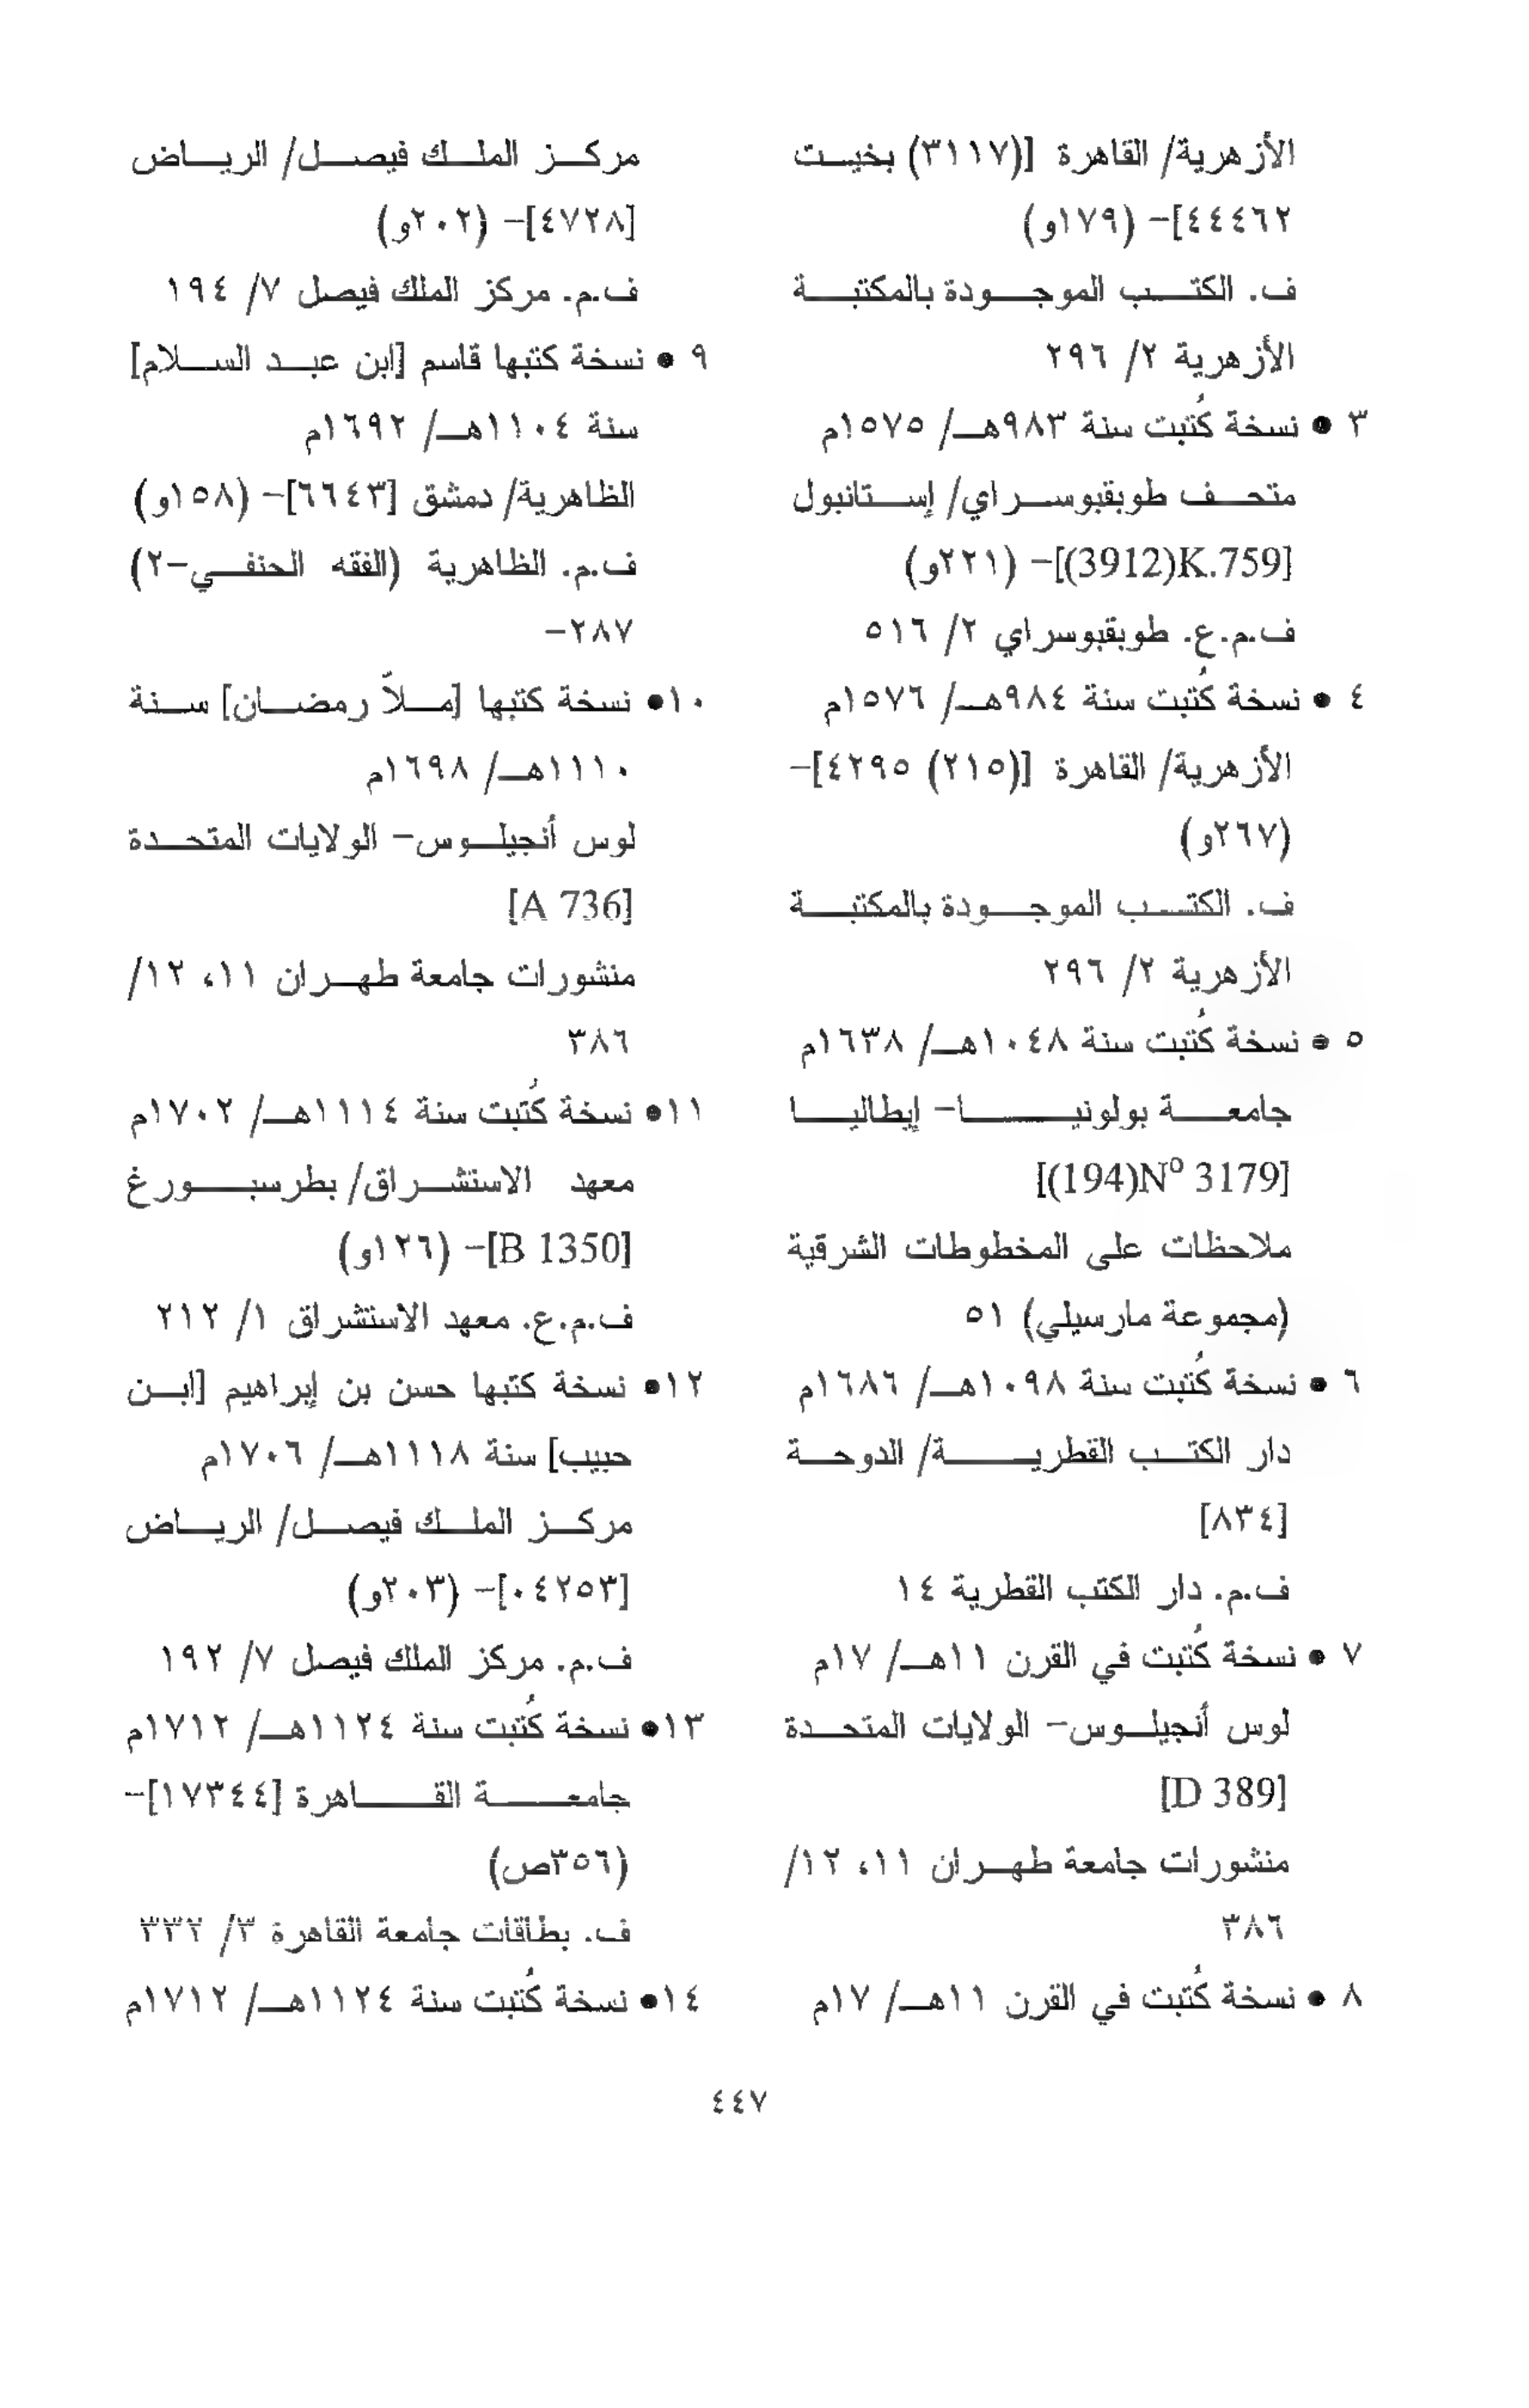 الأزهرية/ القاهرة [(٣١١٧) بخيت
٤٤٤٦٢]- (١٧٩و)
ف. الكتب الموجودة بالمكتبة
الأزهرية ٢/ ٢٩٦
٣ • نسخة كُتبت سنة ٩٨٣هـ/ ١٥٧٥م
متحف طوبقبوسراي/ إستانبول
[K.759(3912)]- (٢٢١و)
ف.م.ع. طوبقبوسراي ٢/ ٥١٦
٤ • نسخة كُتبت سنة ٩٨٤هـ/ ١٥٧٦م
الأزهرية/ القاهرة [(٢١٥) ٤٢٩٥]-
(٢٦٧و)
ف. الكتب الموجودة بالمكتبة
الأزهرية ٢/ ٢٩٦
٥ • نسخة كُتبت سنة ١٠٤٨هـ/ ١٦٣٨م
جامعة بولونيا- إيطاليا
[(194)Nº 3179]
ملاحظات على المخطوطات الشرقية
(مجموعة مارسيلي) ٥١
٦ • نسخة كُتبت سنة ١٠٩٨هـ/ ١٦٨٦م
دار الكتب القطرية/ الدوحة
[٨٣٤]
ف.م. دار الكتب القطرية ١٤
٧ • نسخة كُتبت في القرن ١١هـ/ ١٧م
لوس أنجيلوس- الولايات المتحدة
[D 389]
منشورات جامعة طهران ١١، ١٢/
٣٨٦
٨ • نسخة كُتبت في القرن ١١هـ/ ١٧م
مركز الملك فيصل/ الرياض
[٤٧٢٨]- (٢٠٢و)
ف.م. مركز الملك فيصل ٧/ ١٩٤
٩ • نسخة كتبها قاسم [ابن عبد السلام]
سنة ١١٠٤هـ/ ١٦٩٢م
الظاهرية/ دمشق [٦٦٤٣]- (١٥٨و)
ف.م. الظاهرية (الفقه الحنفي-٢)
٢٨٧-
١٠• نسخة كتبها [ملاّ رمضان] سنة
١١١٠هـ/ ١٦٩٨م
لوس أنجيلوس- الولايات المتحدة
[A 736]
منشورات جامعة طهران ١١، ١٢/
٣٨٦
١١• نسخة كُتبت سنة ١١١٤هـ/ ١٧٠٢م
معهد الاستشراق/ بطرسبورغ
[B 1350]- (١٢٦و)
ف.م.ع. معهد الاستشراق ١/ ٢١٢
١٢• نسخة كتبها حسن بن إبراهيم [ابن
حبيب] سنة ١١١٨هـ/ ١٧٠٦م
مركز الملك فيصل/ الرياض
[٠٤٢٥٣]- (٢٠٣و)
ف.م. مركز الملك فيصل ٧/ ١٩٢
١٣• نسخة كُتبت سنة ١١٢٤هـ/ ١٧١٢م
جامعة القاهرة [١٧٣٤٤]-
(٣٥٦ص)
ف. بطاقات جامعة القاهرة ٣/ ٣٣٢
١٤• نسخة كُتبت سنة ١١٢٤هـ/ ١٧١٢م
٤٤٧